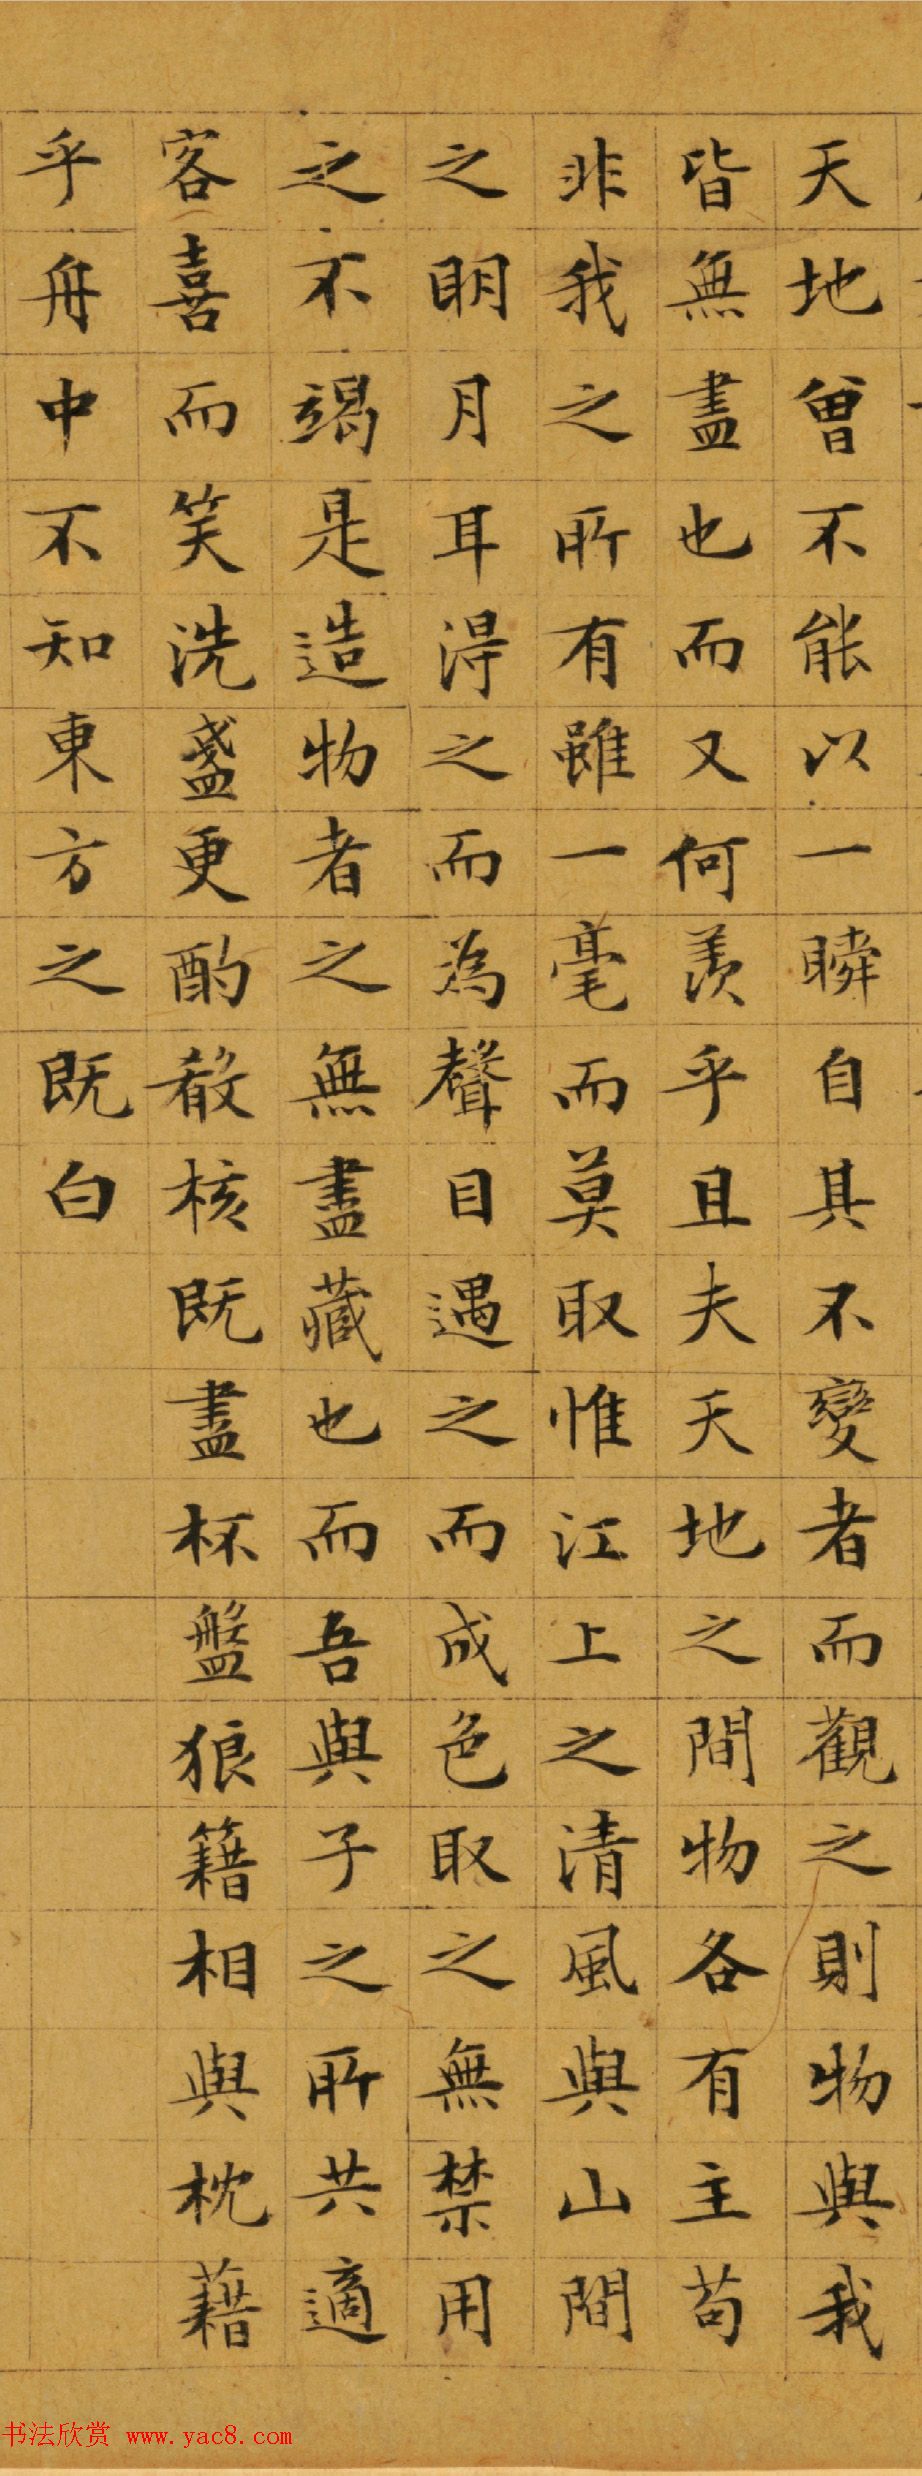 天地曾不能以一瞬自其不變者而觀之則物與我
皆無盡也而又何羨乎且夫天地之間物各有主苟
非我之所有雖一毫而莫取惟江上之清風與山間
之明月耳得之而為聲目遇之而成色取之無禁用
之不竭是造物者之無盡藏也而吾與子之所共適
客喜而笑洗盞更酌殽核既盡杯盤狼籍相與枕藉
乎舟中不知東方之既白
书法欣赏 www.yac8.com